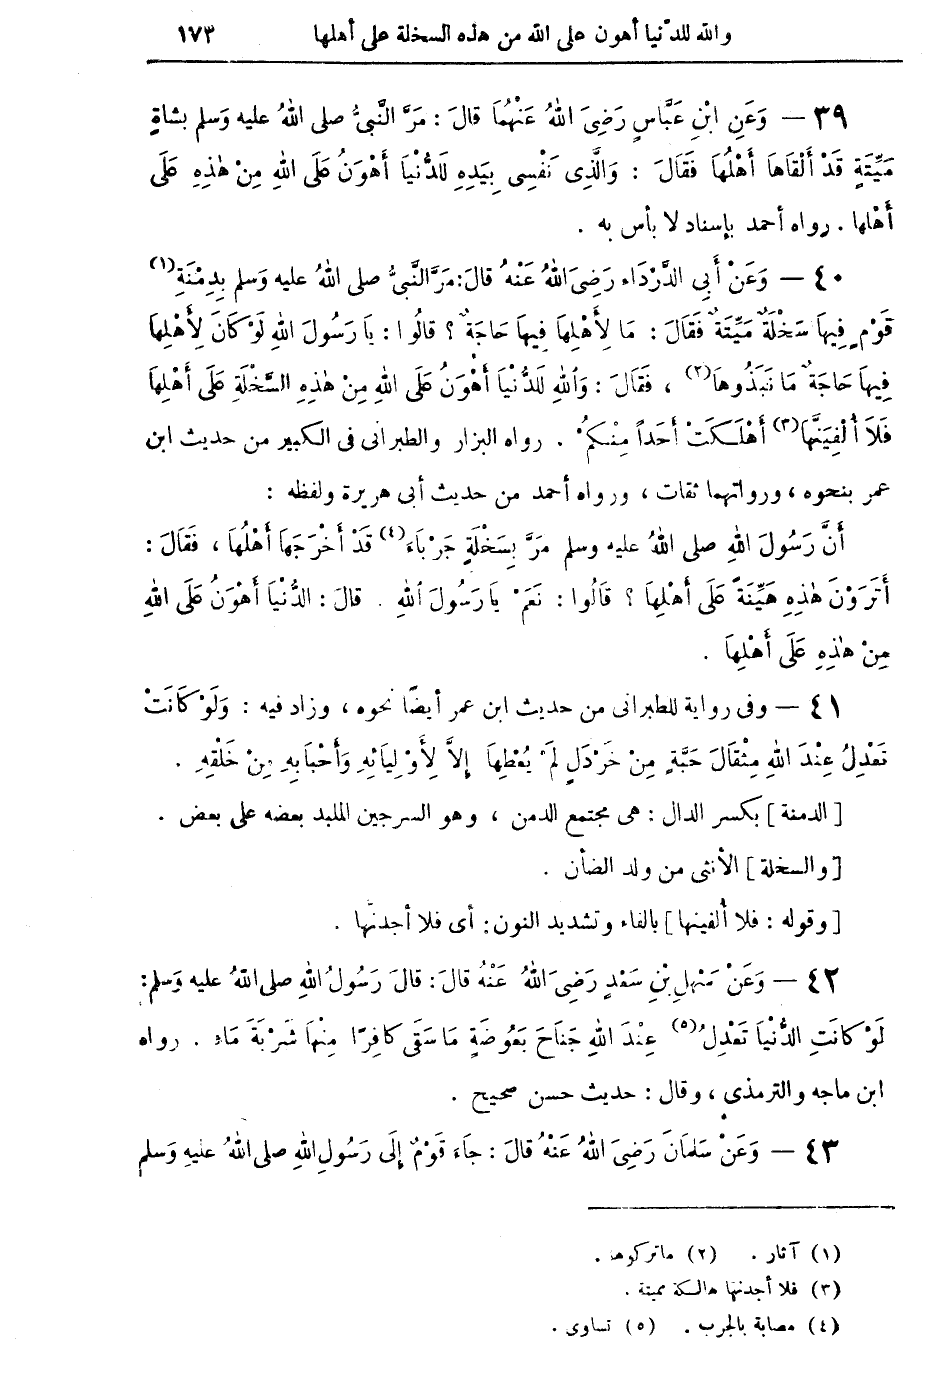 والله للدّنيا أهون على الله من هذه السخلة على أهلها ١٧٣
٣٩ — وَعَنِ ابْنِ عَبَّاسٍ رَضِىَ اللهُ عَنْهُمَا قالَ : مَرَّ النَّبِىُّ صلى اللهُ عليه وَسلم بشاةٍ
مَيِّتَةٍ قَدْ أَلْقَاهَا أَهْلُهَا فَقَالَ : وَالَّذِى نَفْسِى بِيَدِهِ لَلدُّنْيَا أَهْوَنُ عَلَى اللهِ مِنْ هٰذِهِ عَلَى
أَهْلِها . رواه أحمد بإسناد لا بأس به .
٤٠ — وَعَنْ أَبِي الدَّرْدَاء رَضِىَ اللهُ عَنْهُ قالَ: مَرَّ النَّبِىُّ صلى اللهُ عليه وَسلم بِدِمْنَةِ(١)
قَوْمٍ فِيهَا سَخْلَةٌ مَيِّتَةٌ فَقَالَ : مَا لِأَهْلِهَا فِيهَا حَاجَةٌ ؟ قالُوا : يَا رَسُولَ اللهِ لَوْ كَانَ لِأَهْلِهَا
فِيهَا حَاجَةٌ مَا نَبَذُوهَا(٢) ، فَقَالَ : وَاللهِ لَلدُّنْيَا أَهْوَنُ عَلَى اللهِ مِنْ هٰذِهِ السَّخْلَةِ عَلَى أَهْلِهَا
فَلَا أُلْفِيَنَّهَا(٣) أَهْلَكَتْ أَحَداً مِنْكُمْ . رواه البزار والطبرانى فى الكبير من حديث ابن
عمر بنحوه ، ورواتهما ثقات ، ورواه أحمد من حديث أبى هريرة ولفظه :
أَنَّ رَسُولَ اللهِ صلى اللهُ عليه وسلم مَرَّ بِسَخْلَةٍ جَرْبَاءَ(٤) قَدْ أَخْرَجَهَا أَهْلُهَا ، فَقَالَ :
أَتَرَوْنَ هٰذِهِ هَيِّنَةً عَلَى أَهْلِهَا ؟ قَالُوا : نَعَمْ يَا رَسُولَ اللهِ . قالَ : الدُّنْيَا أَهْوَنُ عَلَى اللهِ
مِنْ هٰذِهِ عَلَى أَهْلِهَا .
٤١ — وفى رواية للطبرانى من حديث ابن عمر أيضًا نحوه ، وزاد فيه : وَلَوْ كَانَتْ
تَعْدِلُ عِنْدَ اللهِ مِثْقَالَ حَبَّةٍ مِنْ خَرْدَلٍ لَمْ يُعْطِهَا إِلاَّ لِأَوْلِيَائِهِ وَأَحْبَابِهِ مِنْ خَلْقِهِ .
[ الدمنة ] بكسر الدال : هى مجتمع الدمن ، وهو السرجين الملبد بعضه على بعض .
[ والسخلة ] الأنثى من ولد الضأن .
[ وقوله : فلا أُلفينها ] بالفاء وتشديد النون : أى فلا أجدنّها .
٤٢ — وَعَنْ سَهْلِ بْنِ سَعْدٍ رَضِىَ اللهُ عَنْهُ قالَ : قالَ رَسُولُ اللهِ صلى اللهُ عليه وَسلم :
لَوْ كَانَتِ الدُّنْيَا تَعْدِلُ(٥) عِنْدَ اللهِ جَنَاحَ بَعُوضَةٍ مَا سَقَى كَافِرًا مِنْهَا شَرْبَةَ مَاءٍ . رواه
ابن ماجه والترمذى ، وقال : حديث حسن صحيح .
٤٣ — وَعَنْ سَلْمَانَ رَضِىَ اللهُ عَنْهُ قالَ : جَاءَ قَوْمٌ إِلَى رَسُولِ اللهِ صلى اللهُ عليهِ وَسلم
(١) آثار . (٢) ماتركوها .
(٣) فلا أجدنها هالكة ميتة .
(٤) مصابة بالجرب . (٥) تساوى .